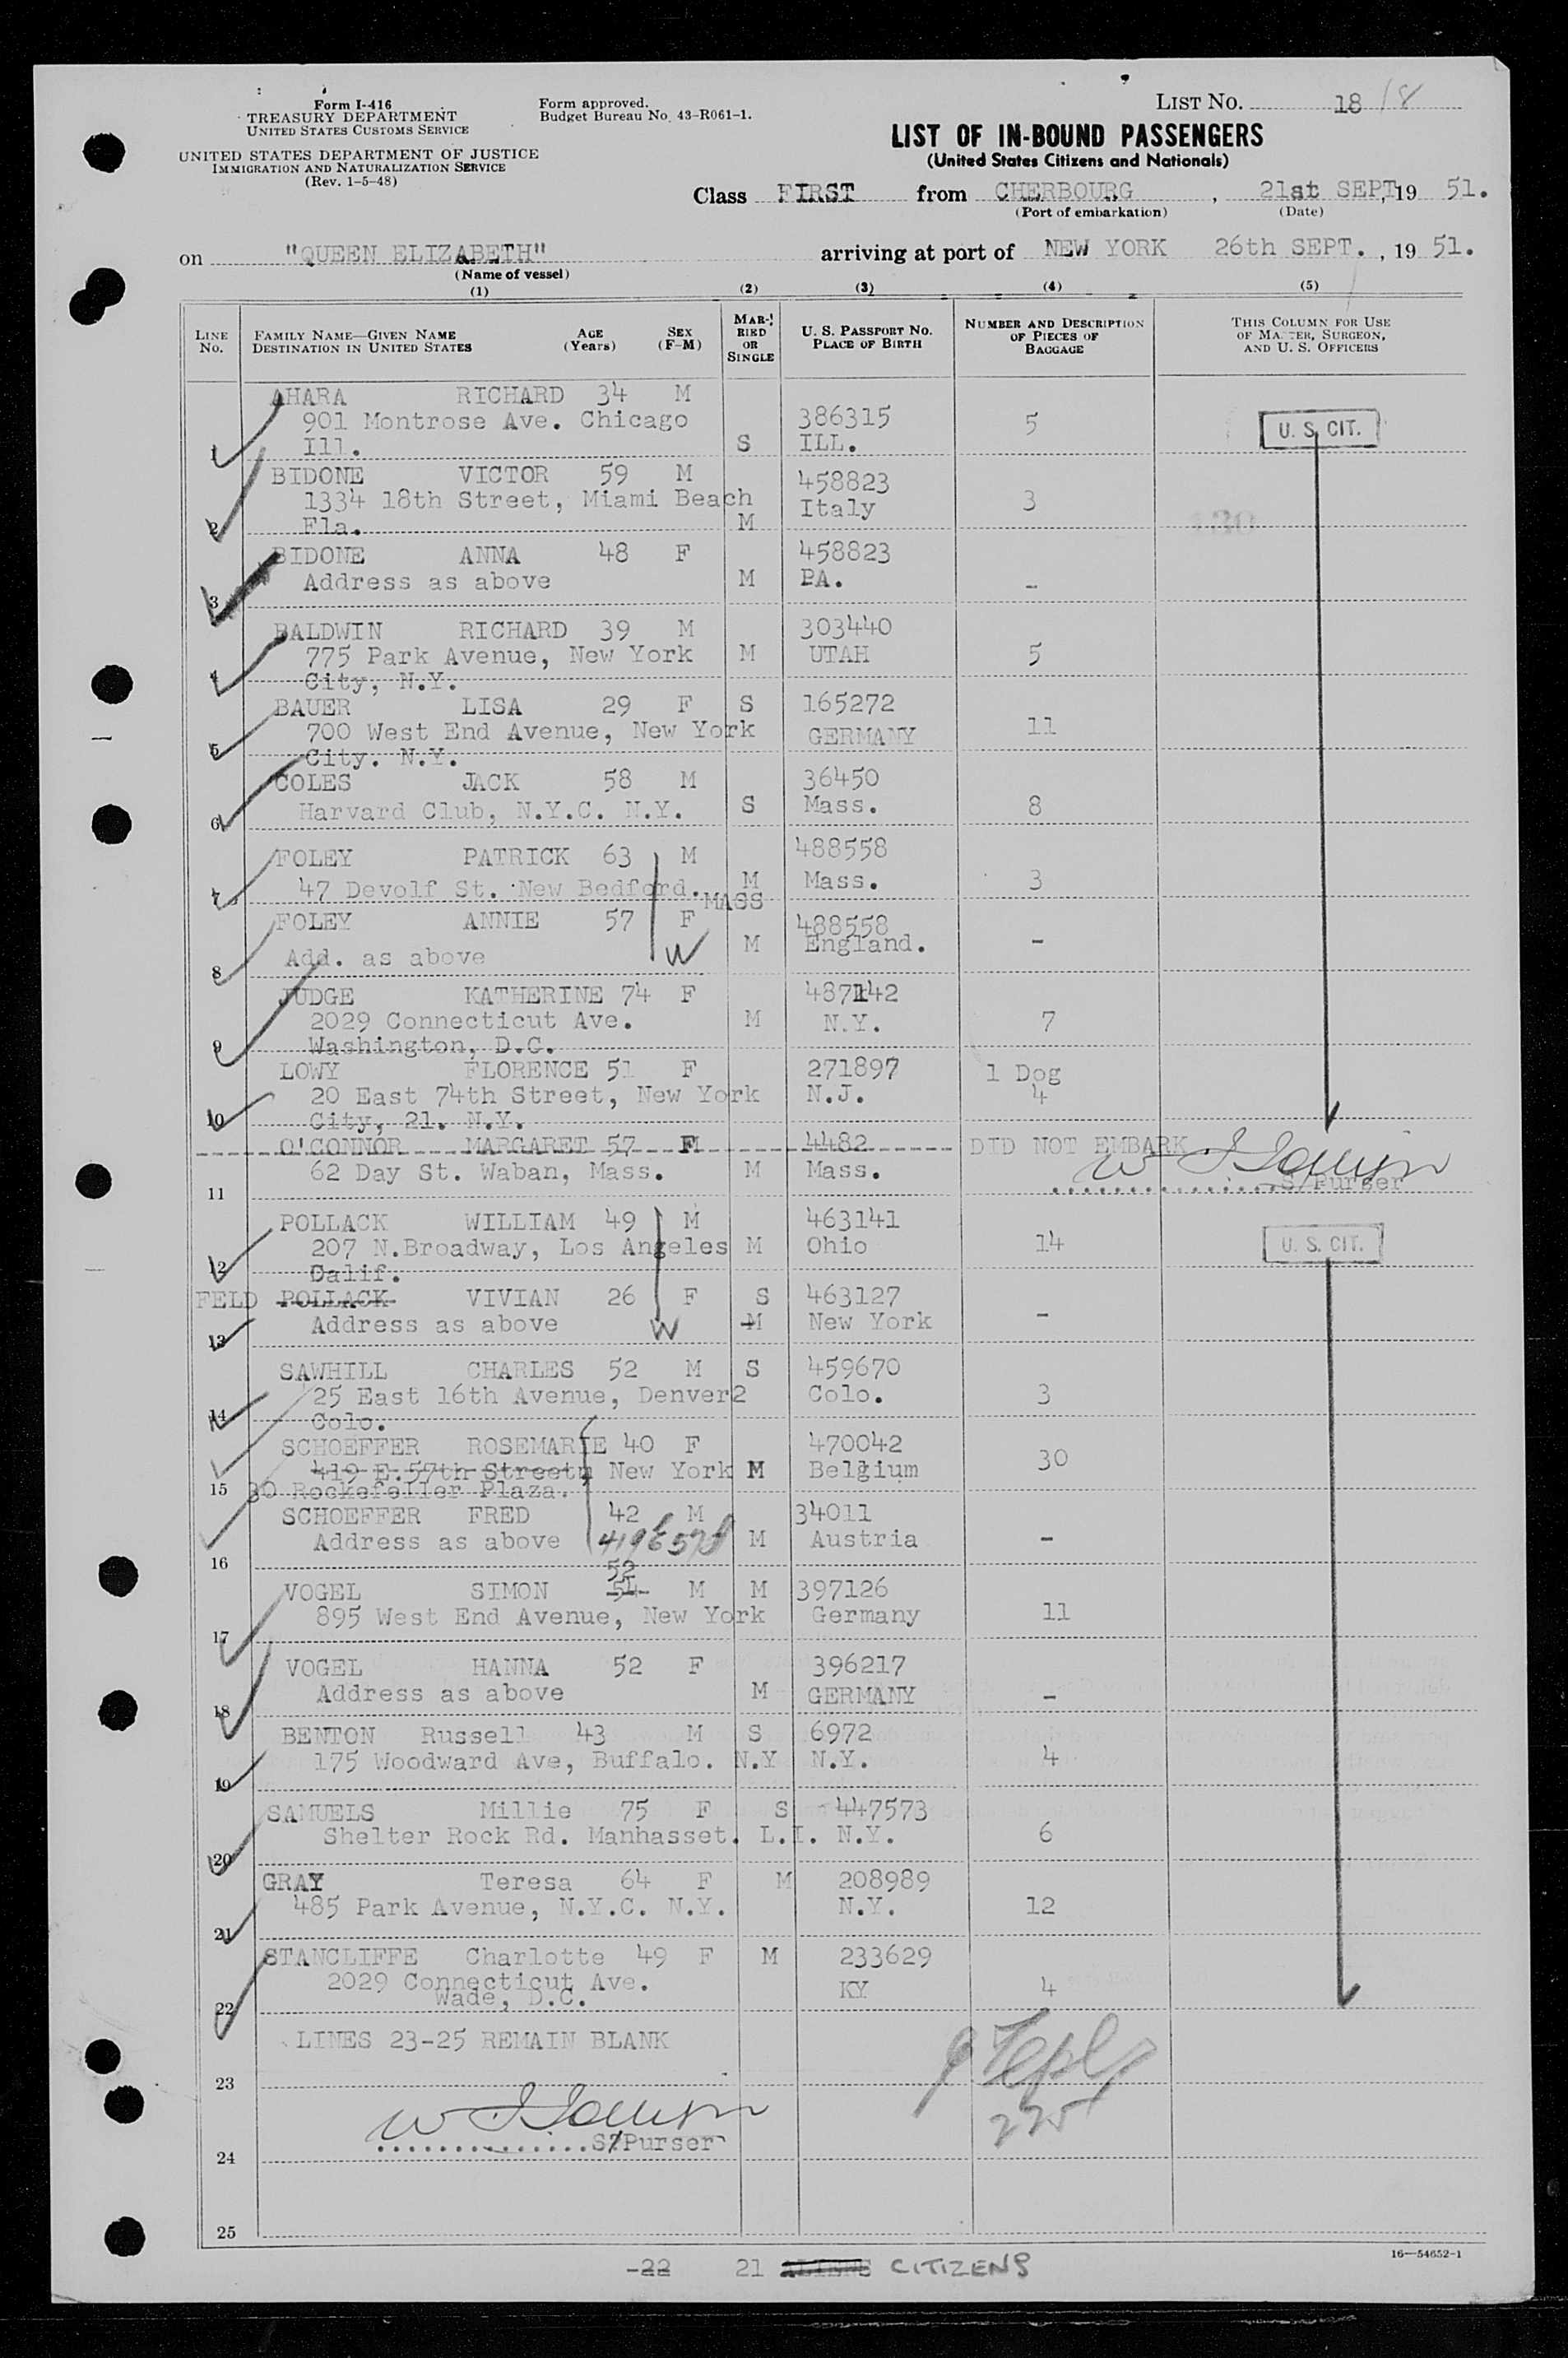 Form I-416
TREASURY DEPARTMENT
UNITED STATES CUSTOMS SERVICE
UNITED STATES DEPARTMENT OF JUSTICE
IMMIGRATION AND NATURALIZATION SERVICE
(Rev. 1-5-48)
Form approved.
Budget Bureau No. 43-R061-1.
LIST NO. 18 18
LIST OF IN-BOUND PASSENGERS
(United States Citizens and Nationals)
Class FIRST from CHERBOURG, 21st SEPT, 19 51.
(Port of embarkation) (Date)
on "QUEEN ELIZABETH" arriving at port of NEW YORK 26th SEPT., 19 51.
(Name of vessel)
(1) (2) (3) (4) (5)
LINE NO.
FAMILY NAME—GIVEN NAME AGE (Years) SEX (F-M)
DESTINATION IN UNITED STATES
MARRIED OR SINGLE
U. S. PASSPORT NO.
PLACE OF BIRTH
NUMBER AND DESCRIPTION OF PIECES OF BAGGAGE
THIS COLUMN FOR USE OF MASTER, SURGEON, AND U. S. OFFICERS
AHARA RICHARD 34 M
901 Montrose Ave. Chicago 386315 5 U. S. CIT.
1 Ill. S ILL.
BIDONE VICTOR 59 M 458823
1334 18th Street, Miami Beach Italy 3
2 Fla. M
BIDONE ANNA 48 F 458823
Address as above M PA. -
3
BALDWIN RICHARD 39 M 303440
775 Park Avenue, New York M UTAH 5
4 City, N.Y.
BAUER LISA 29 F S 165272
700 West End Avenue, New York GERMANY 11
5 City. N.Y.
COLES JACK 58 M 36450
Harvard Club, N.Y.C. N.Y. S Mass. 8
6
FOLEY PATRICK 63 M 488558
47 Devolf St. New Bedford. MASS M Mass. 3
7
FOLEY ANNIE 57 F 488558
Add. as above W M England. -
8
JUDGE KATHERINE 74 F 487142
2029 Connecticut Ave. M N.Y. 7
9 Washington, D.C.
LOWY FLORENCE 51 F 271897 1 Dog
20 East 74th Street, New York N.J. 4
10 City, 21. N.Y.
O'CONNOR MARGARET 57 F 4482 DID NOT EMBARK
62 Day St. Waban, Mass. M Mass.
11 S/Purser
POLLACK WILLIAM 49 M 463141
207 N.Broadway, Los Angeles M Ohio 14 U. S. CIT.
12 Calif.
FELD POLLACK VIVIAN 26 F S 463127
Address as above W M New York -
13
SAWHILL CHARLES 52 M S 459670
25 East 16th Avenue, Denver2 Colo. 3
14 Colo.
SCHOEFFER ROSEMARIE 40 F 470042
419 E.57th Street, New York M Belgium 30
15 30 Rockefeller Plaza.
SCHOEFFER FRED 42 M 34011
Address as above 419 E 57 M Austria -
16
52
VOGEL SIMON 54 M M 397126
895 West End Avenue, New York Germany 11
17
VOGEL HANNA 52 F 396217
Address as above M GERMANY -
18
BENTON Russell 43 M S 6972
175 Woodward Ave, Buffalo. N.Y N.Y. 4
19
SAMUELS Millie 75 F S 447573
Shelter Rock Rd. Manhasset. L.I. N.Y. 6
20
GRAY Teresa 64 F M 208989
485 Park Avenue, N.Y.C. N.Y. N.Y. 12
21
STANCLIFFE Charlotte 49 F M 233629
2029 Connecticut Ave. KY 4
Wade, D.C.
22
LINES 23-25 REMAIN BLANK
23
225
S/Purser
24
25
16—54652-1
-22 21 ALIENS CITIZENS